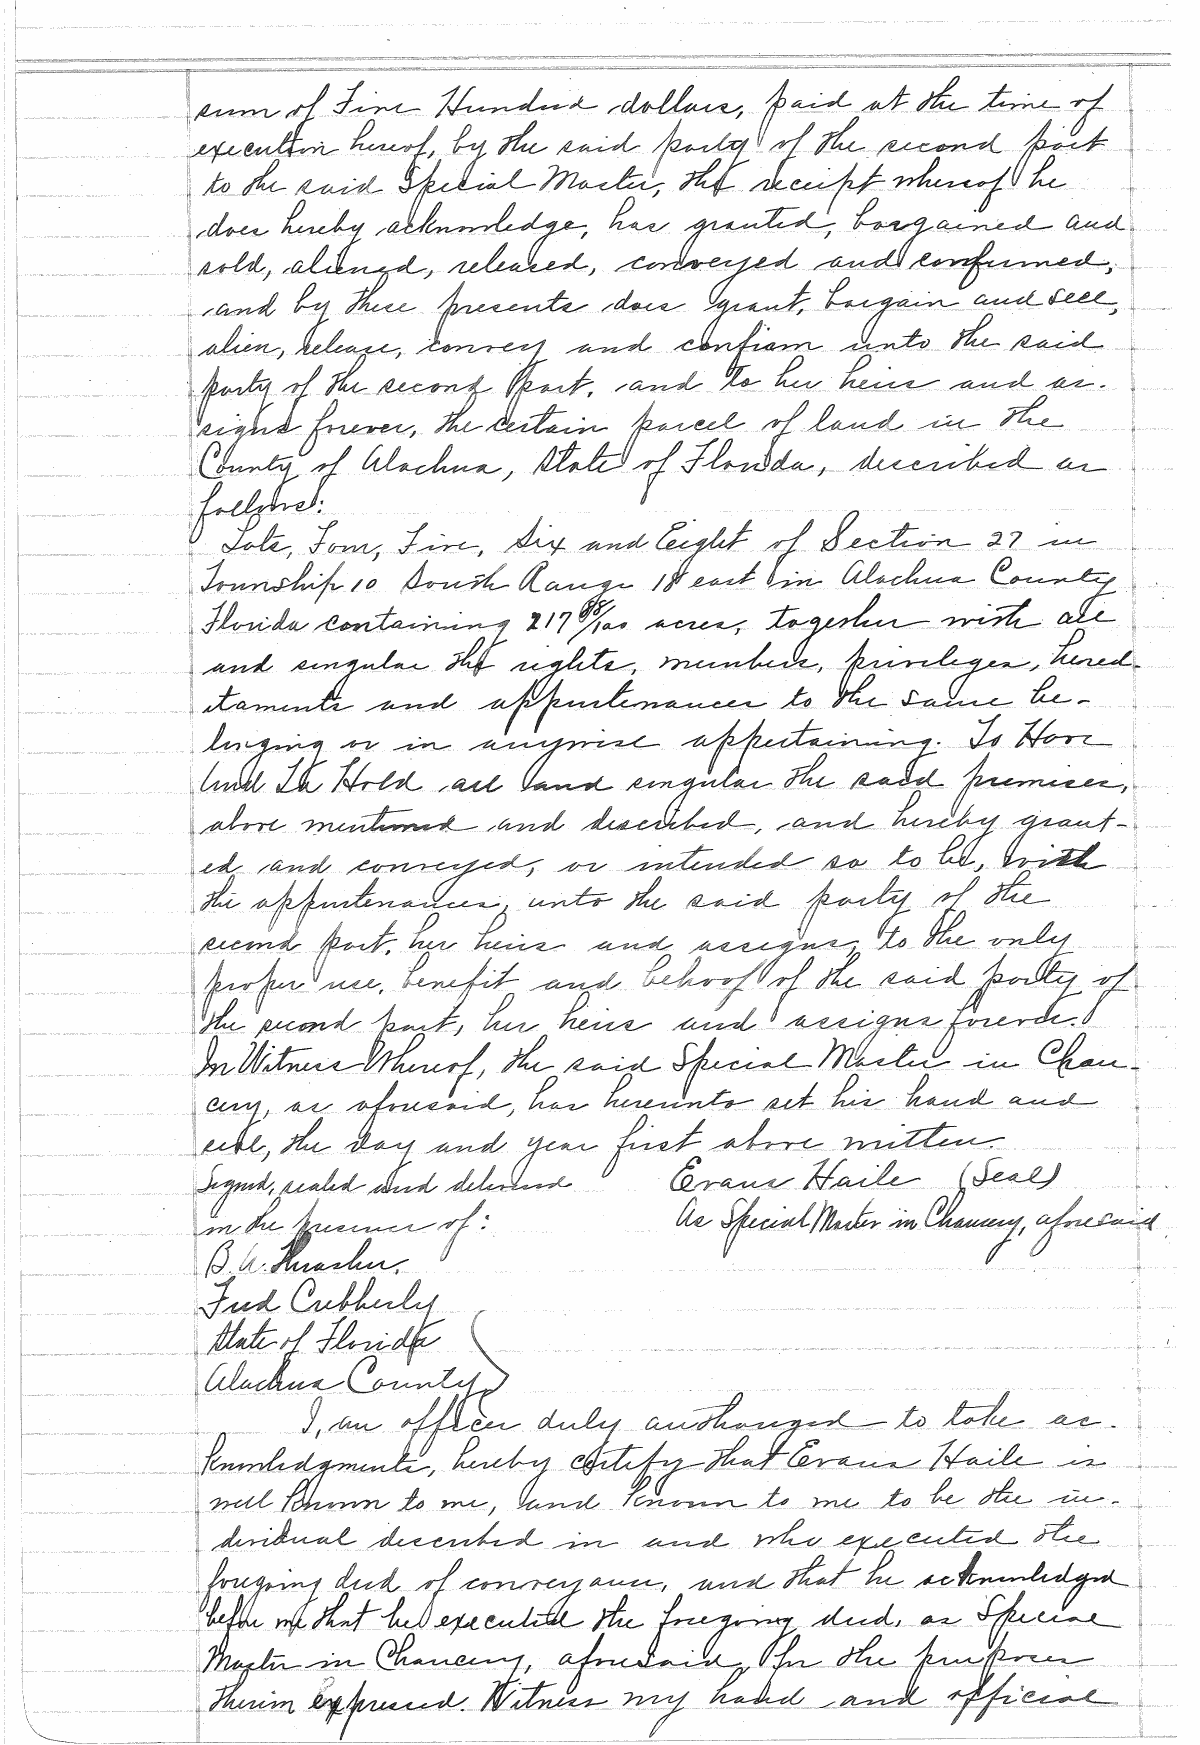 sum of Five Hundred dollars, paid at the time of
execution hereof, by the said party of the second part
to the said Special Master, the receipt whereof he
does hereby acknowledge, has granted, bargained and
sold, aliened, released, conveyed and confirmed,
and by these presents does grant, bargain and sell,
alien, release, convey and confirm unto the said
party of the second part, and to her heirs and as-
signs forever, the certain parcel of land in the
County of Alachua, State of Florida, described as
follows:
Lots, Four, Five, Six and Eight of Section 27 in
Township 10 South Range 18 east in Alachua County
Florida containing 217 98/100 acres, together with all
and singular the rights, members, privileges, hered-
itaments and appurtenances to the same be-
longing or in anywise appertaining. To Have
And To Hold all and singular the said premises,
above mentioned and described, and hereby grant-
ed and conveyed, or intended so to be, with
the appurtenances, unto the said party of the
second part, her heirs and assigns, to the only
proper use, benefit and behoof of the said party of
the second part, her heirs and assigns forever.
In Witness Whereof, the said Special Master in Chan-
cery, as aforesaid, has hereunto set his hand and
seal, the day and year first above written.
Signed, sealed and delivered Evans Haile (Seal)
in the presence of: As Special Master in Chancery, aforesaid
B. A. Thrasher.
Fred Cubberly
State of Florida
Alachua County
I, an officer duly authorized to take ac-
knowledgments, hereby certify that Evans Haile is
well known to me, and known to me to be the in-
dividual described in and who executed the
foregoing deed of conveyance, and that he acknowledged
before me that he executed the foregoing deed, as Special
Master in Chancery, aforesaid, for the purposes
therein expressed. Witness my hand and official